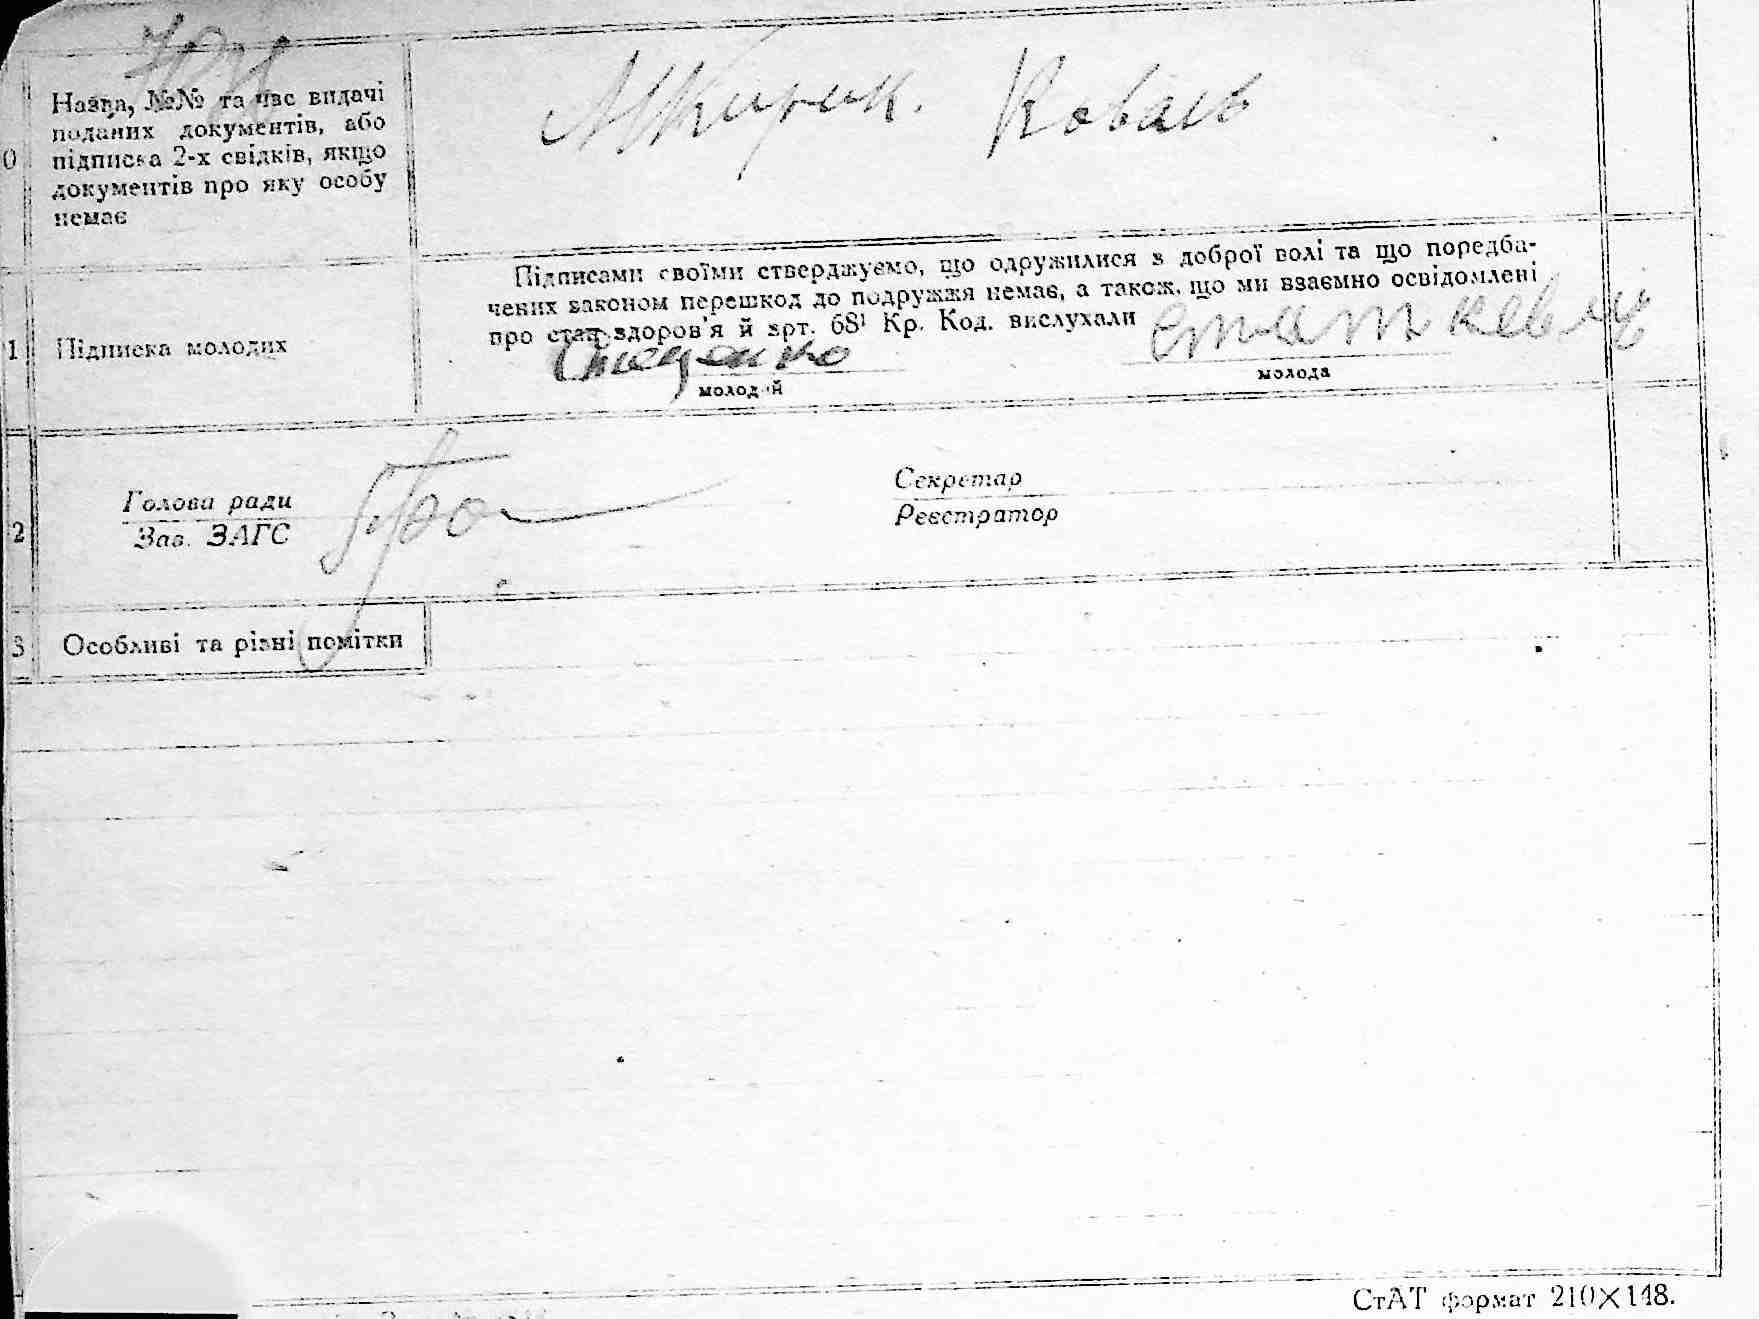 Назва, №№ та час видачі
поданих документів, або
підписка 2-х свідків, якщо
документів про яку особу
немає
Коваль
0
Підписами своїми стверджуємо, що одружилися з доброї волі та що поредба-
чених законом перешкод до подружжя немає, а також, що ми взаємно освідомлені
про стан здоров'я й арт. 68¹ Кр. Код. вислухали
1 Підписка молодих
Онищенко
молодий
молода
Голова ради
Зав. ЗАГС
Секретар
Реєстратор
2
3 Особливі та різні помітки
СтАТ формат 210×148.